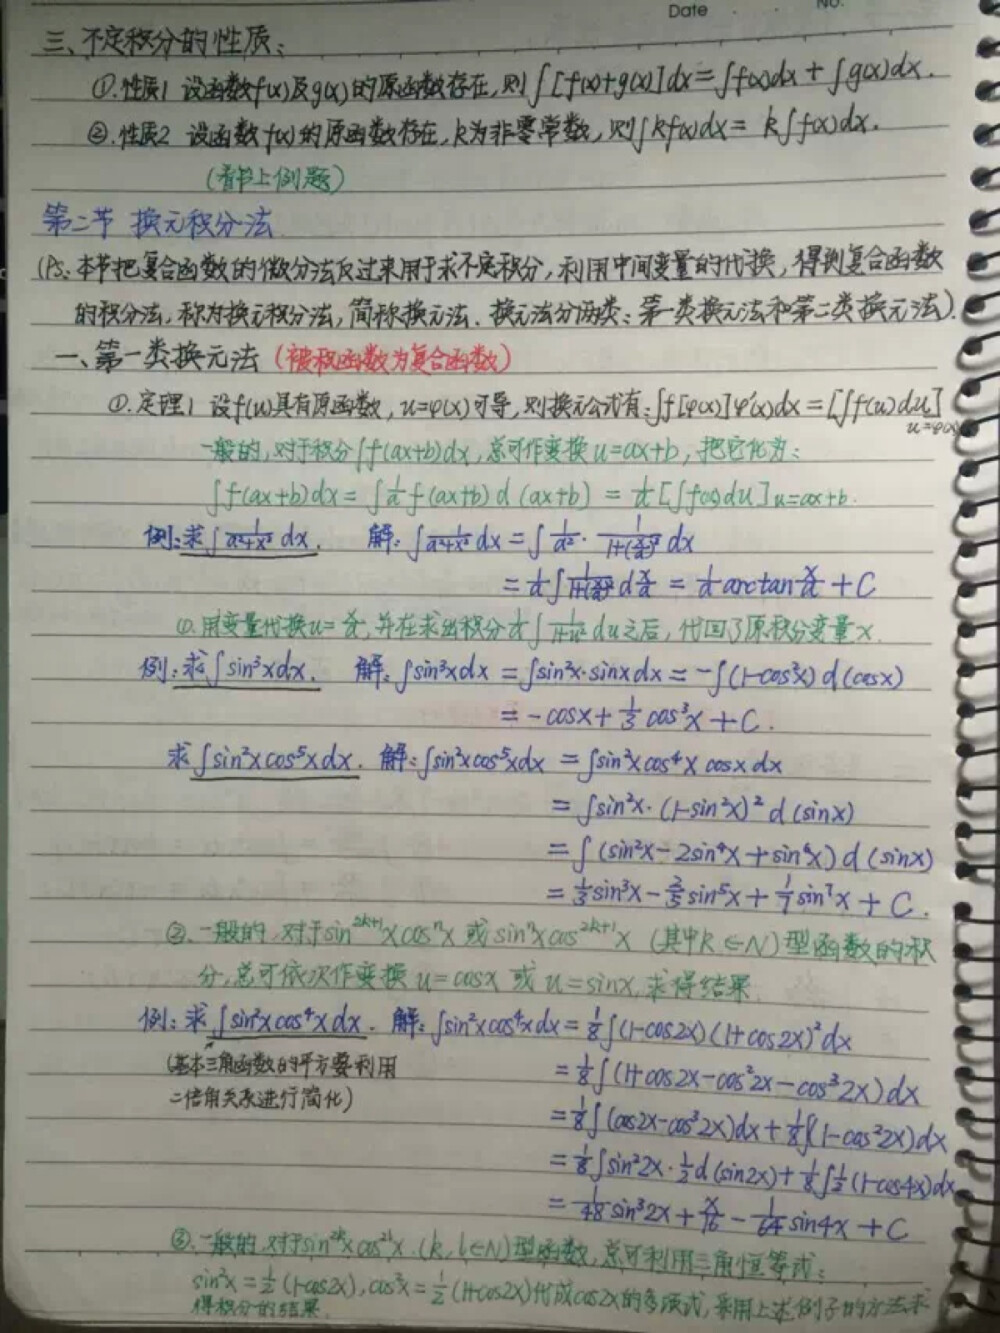 Date No.
三、不定积分的性质:
①.性质1 设函数f(x)及g(x)的原函数存在,则∫[f(x)+g(x)]dx=∫f(x)dx+∫g(x)dx.
②.性质2 设函数f(x)的原函数存在,k为非零常数,则∫kf(x)dx=k∫f(x)dx.
(看书上例题)
第二节 换元积分法
(Ps:本节把复合函数的微分法反过来用于求不定积分,利用中间变量的代换,得到复合函数
的积分法,称为换元积分法,简称换元法.换元法分两类:第一类换元法和第二类换元法).
一、第一类换元法(被积函数为复合函数)
①.定理1 设f(u)具有原函数,u=φ(x)可导,则换元公式有:∫f[φ(x)]φ'(x)dx=[∫f(u)du]u=φ(x)
一般的,对于积分∫f(ax+b)dx,总可作变换u=ax+b,把它化为:
∫f(ax+b)dx=∫1/a f(ax+b)d(ax+b)=1/a[∫f(u)du]u=ax+b.
例:求∫1/(a²+x²)dx. 解:∫1/(a²+x²)dx=∫1/a²·1/(1+(x/a)²)dx
=1/a∫1/(1+(x/a)²)d x/a=1/a arctan x/a+C
①.用变量代换u=x/a,并在求出积分1/a∫1/(1+u²)du之后,代回了原积分变量x.
例:求∫sin³xdx. 解:∫sin³xdx=∫sin²x·sinxdx=-∫(1-cos²x)d(cosx)
=-cosx+1/3cos³x+C.
求∫sin²xcos⁵xdx. 解:∫sin²xcos⁵xdx=∫sin²xcos⁴xcosxdx
=∫sin²x·(1-sin²x)²d(sinx)
=∫(sin²x-2sin⁴x+sin⁶x)d(sinx)
=1/3sin³x-2/5sin⁵x+1/7sin⁷x+C.
②.一般的,对于sin²ᵏ⁺¹xcosⁿx或sinⁿxcos²ᵏ⁺¹x(其中k∈N)型函数的积
分,总可依次作变换u=cosx或u=sinx,求得结果.
例:求∫sin²xcos⁴xdx. 解:∫sin²xcos⁴xdx=1/8∫(1-cos2x)(1+cos2x)²dx
(基本三角函数的平方要利用
=1/8∫(1+cos2x-cos²2x-cos³2x)dx
二倍角关系进行简化)
=1/8∫(cos2x-cos³2x)dx+1/8∫(1-cos²2x)dx
=1/8∫sin²2x·1/2d(sin2x)+1/8∫1/2(1-cos4x)dx
=1/48sin³2x+x/16-1/64sin4x+C
③.一般的,对于sin²ᵏxcos²ˡx.(k,l∈N)型函数,总可利用三角恒等式:
sin²x=1/2(1-cos2x),cos²x=1/2(1+cos2x)代成cos2x的多项式,采用上述例子的方法求
得积分的结果.